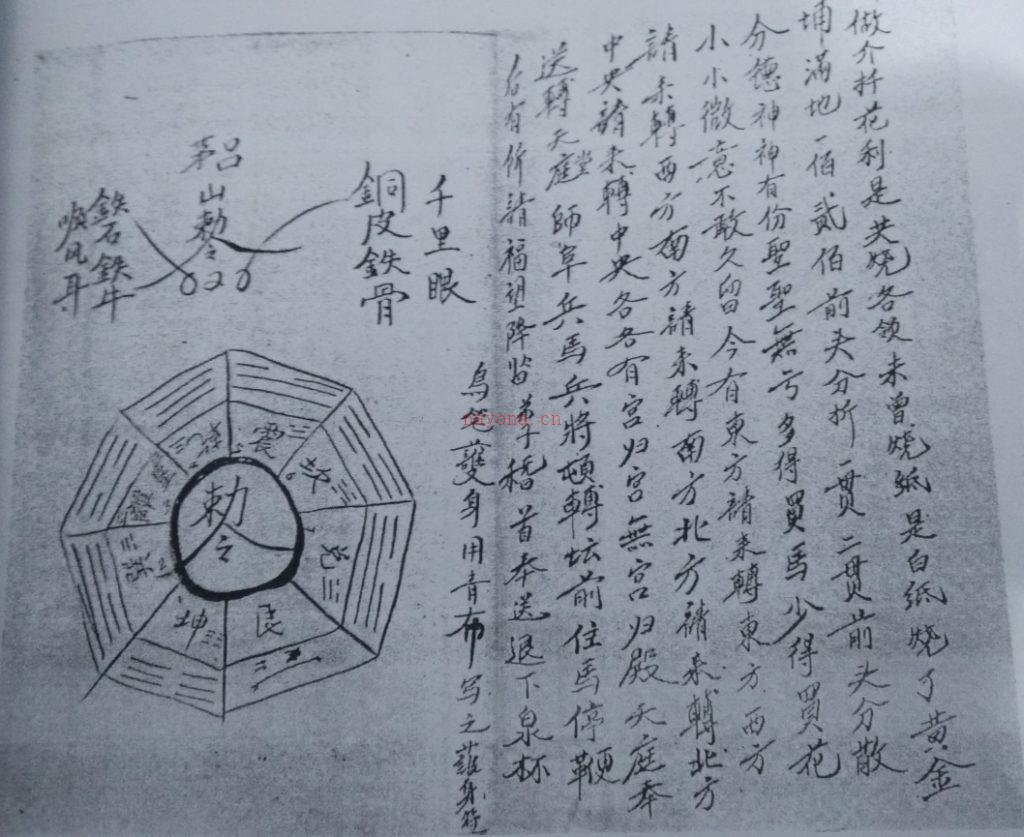 做介扦花利是共燒各領未曾燒紙是白紙燒了黃金
埔滿地一佰貳佰前头分折一贯二贯前头分散
分德神神有份聖聖無亏多得買馬少得買花
小小微意不敢久留今有東方請来轉東方西方
請来轉西方南方請来轉南方北方請来轉北方
中央請来轉中央各各有宫归宫無宫归殿天庭奉
送轉天庭堂師阜兵馬兵將頓轉坛前住馬停鞭
后有所請福望降监弟子稽首奉送退下泉杯
護身用青布写之護身符
千里眼
銅皮鉄骨
茅吕
山
敕令
鉄石鉄牛
順风耳
敕令
震
兌
艮
坤
nayona.cn